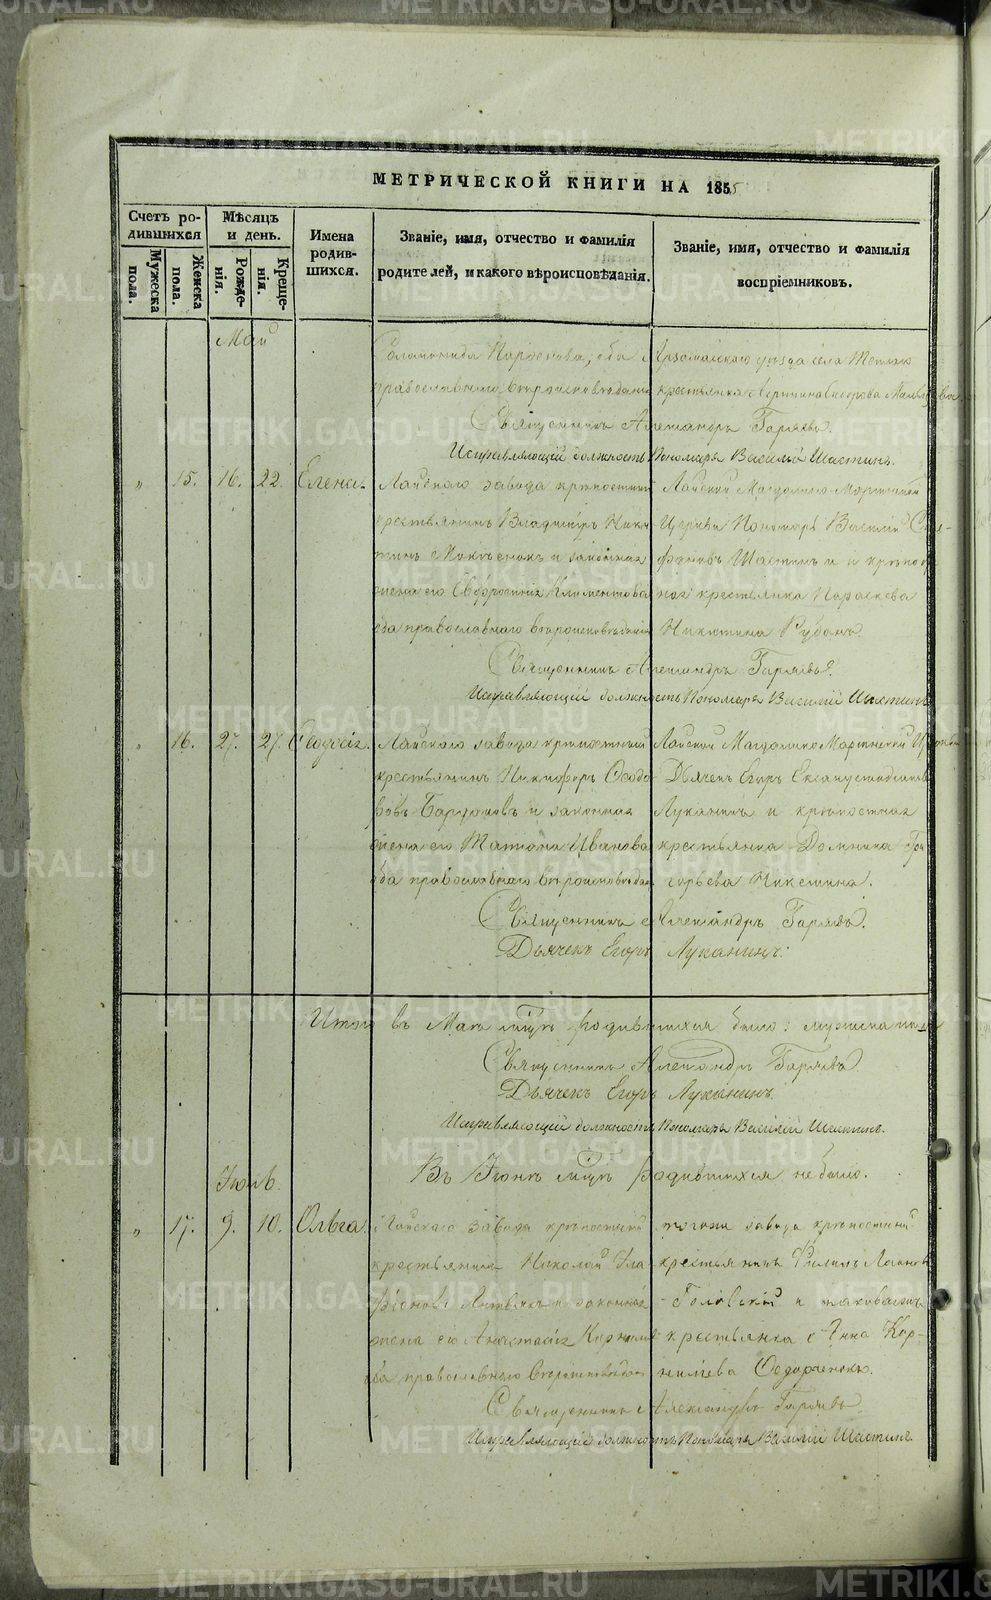 METRIKI.GASO-URAL.RU
МЕТРИЧЕСКОЙ КНИГИ НА 1855
Счетъ родившихся
Мужеска пола.
Женска пола.
Мѣсяцъ и день.
Рожденія.
Крещенія.
Имена родившихся.
Званіе, имя, отчество и фамилія родителей, и какого вѣроисповѣданія.
Званіе, имя, отчество и фамилія воспріемниковъ.
Май
оба
православнаго вѣроисповѣданія
Арзамаскаго уѣзда села
крестьянка
Священникъ Александръ Гаряевъ.
Исправляющій должность Пономаря Василій Шастинъ.
„ 15. 16. 22. Елена.
Лайскаго завода крѣпостный
крестьянинъ Владиміръ Ники-
тинъ и законная
жена его Евфросинія Климентова
оба православнаго вѣроисповѣданія
Лайской Магдалино-Маріинской
Церкви Пономарь Василій Сте-
фановъ Шастинъ и крѣпост-
ная крестьянка Параскева
Никитина
Священникъ Александръ Гаряевъ.
Исправляющій должность Пономаря Василій Шастинъ
„ 16. 27. 27. Ѳеодосія.
Лайскаго завода крѣпостный
крестьянинъ Никифоръ Ѳеодо-
ровъ и законная
жена его Татіана Иванова
оба православнаго вѣроисповѣдан.
Лайской Магдалино Маріинской Церкви
Дьячекъ Егоръ
Луканинъ и крѣпостная
крестьянка Домника Гри-
горьева Никитина.
Священникъ Александръ Гаряевъ.
Дьячекъ Егоръ Луканинъ.
Итого въ Маѣ мѣсяцѣ родившихся было: мужеска пола
Священникъ Александръ Гаряевъ
Дьячекъ Егоръ Луканинъ.
Исправляющій должность Пономаря Василій Шастинъ.
Въ Іюнѣ мѣсяцѣ родившихся не было.
Іюль.
„ 17. 9. 10. Ольга.
Лайскаго завода крѣпостный
крестьянинъ Николай Ила-
ріоновъ и законная
жена его Анастасія
оба православнаго вѣроисповѣдан.
тогожъ завода крѣпостный
крестьянинъ Филипъ
и таковаяжъ
крестьянка Анна Кор-
нилѣева
Священникъ Александръ Гаряевъ.
Исправляющій должность Пономаря Василій Шастинъ.